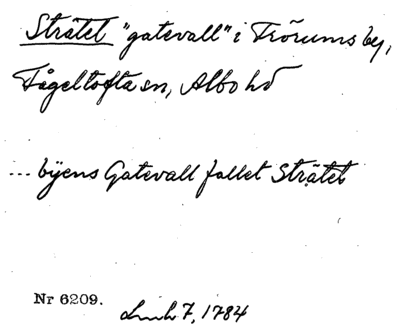 Strätet "gatevall" i Trörums by,
Fågeltofta sn, Albo hd
... byens Gatevall fallet Strätet
Nr 6209.
7, 1784